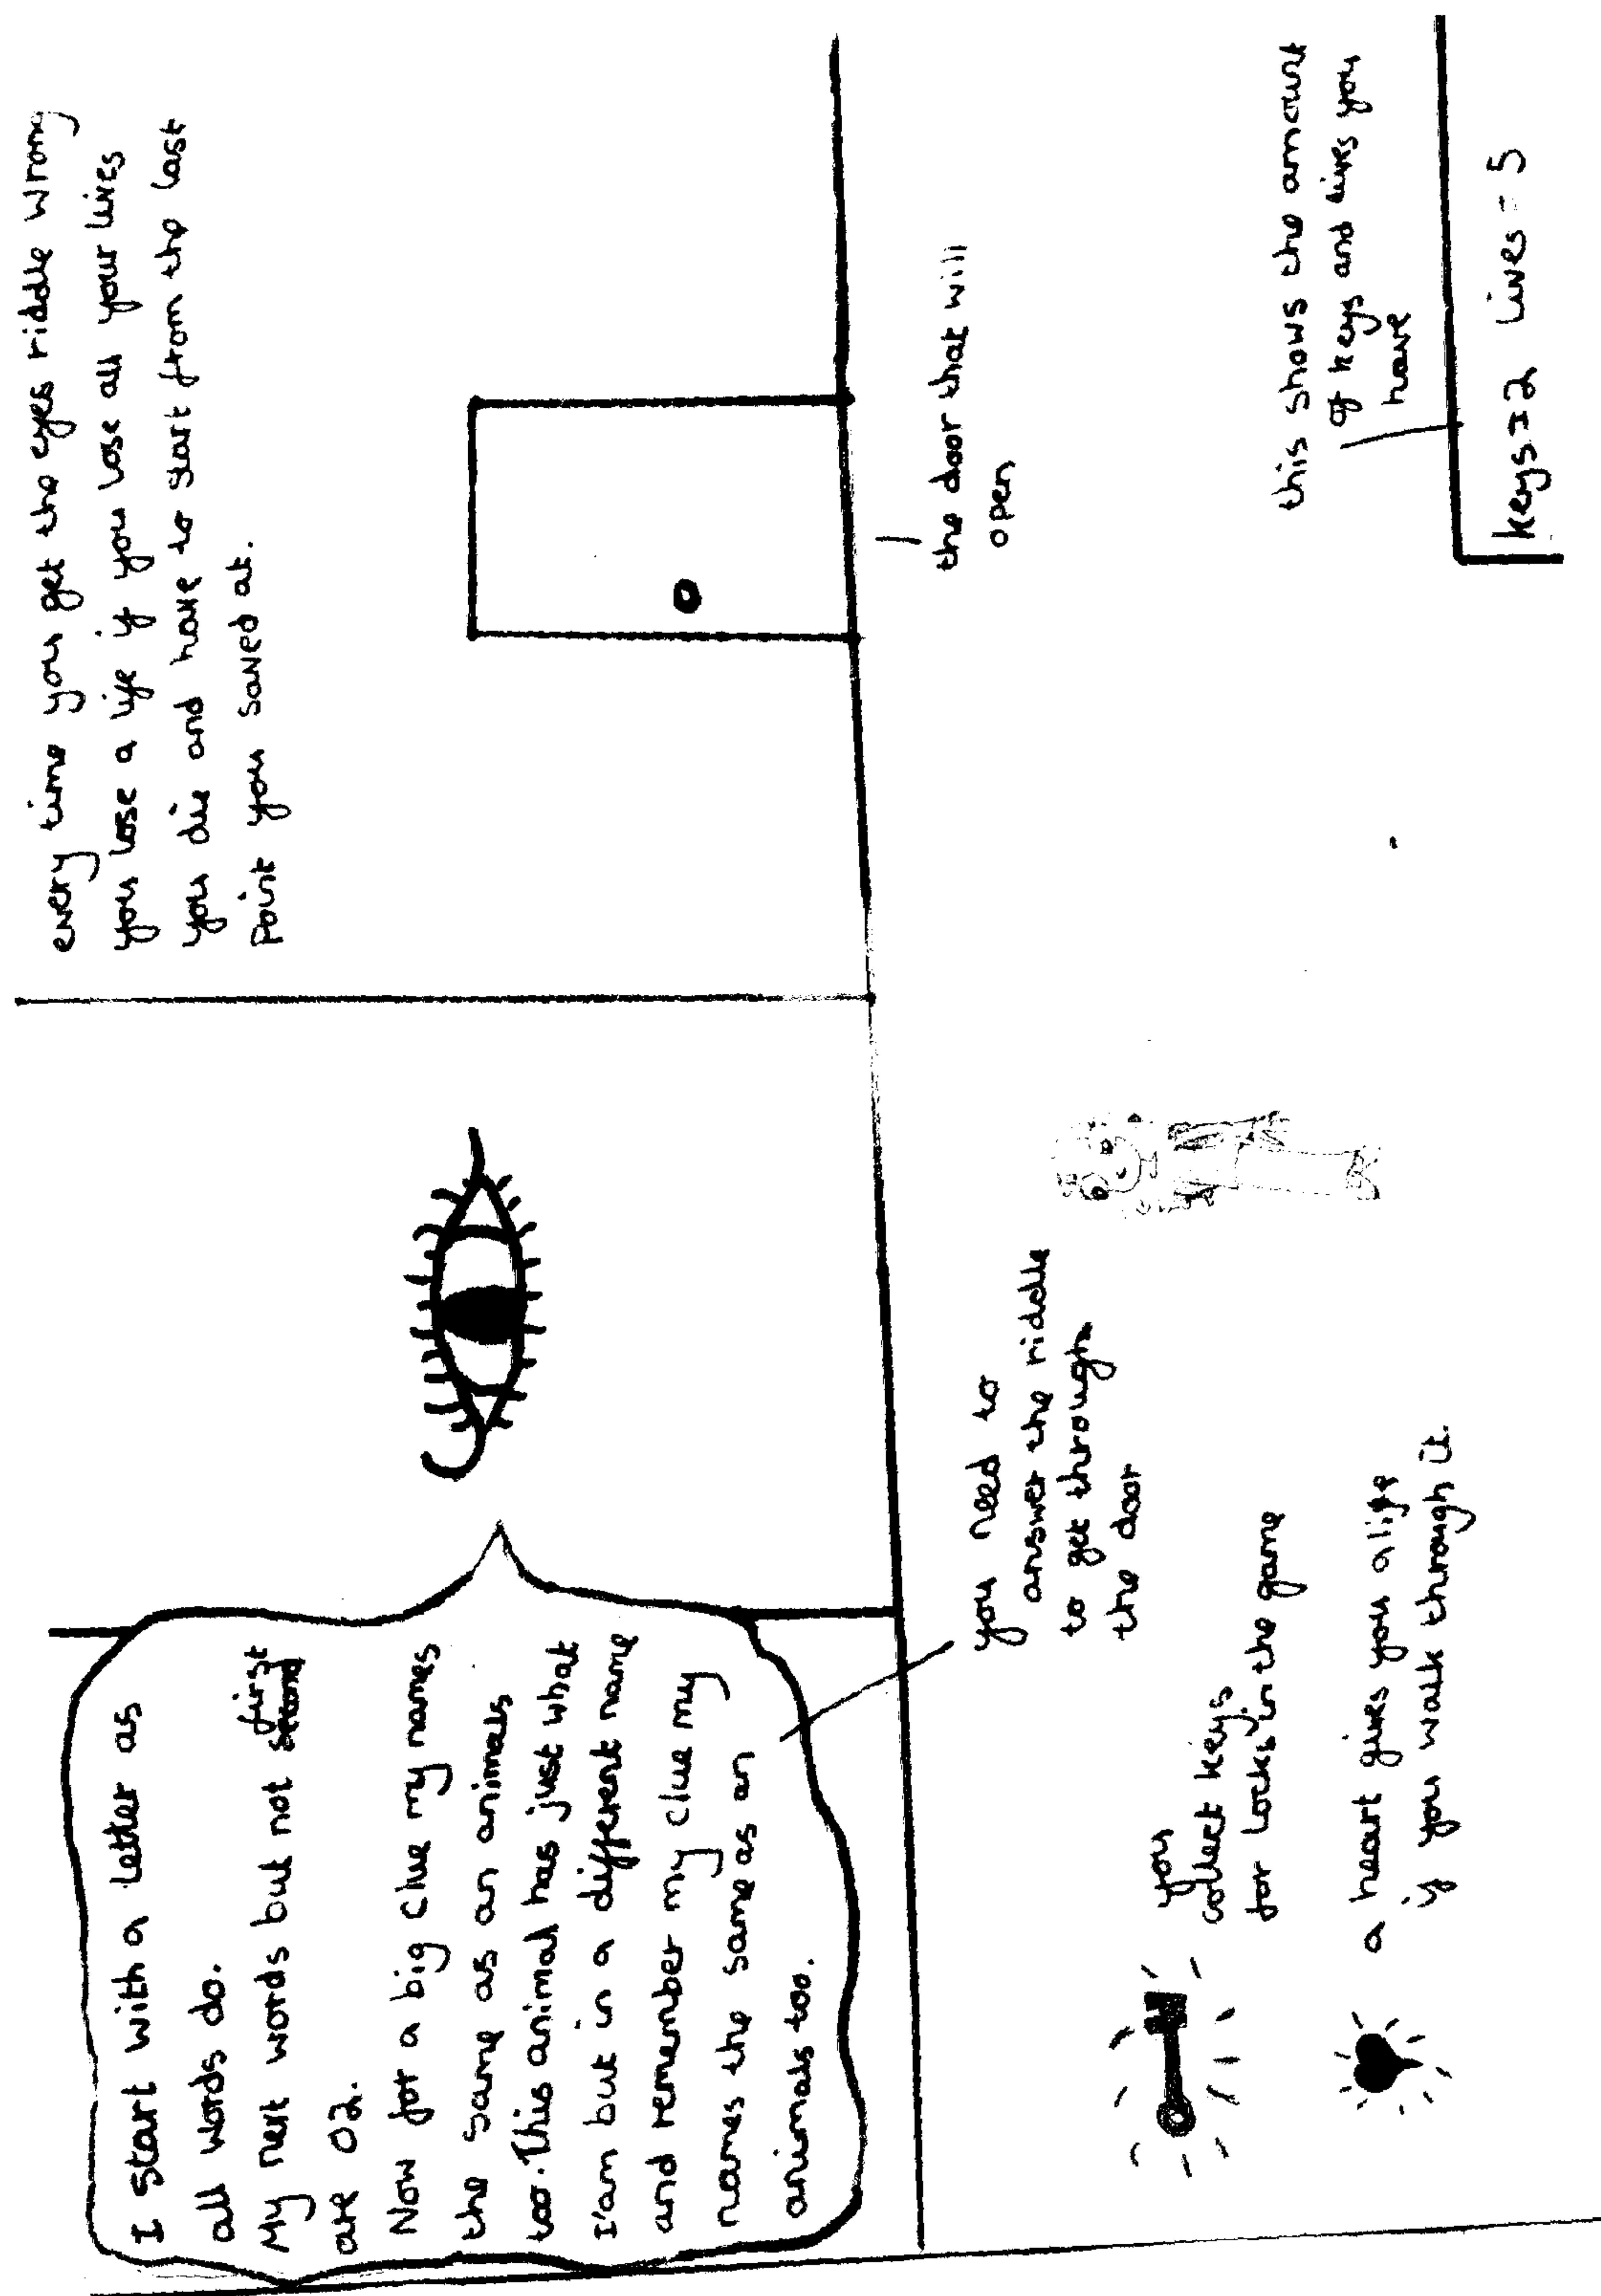 I start with a letter as
all words do.
My next words but not first
are 02.
Now for a big clue my names
the same as an animals
too. This animal has just what
I'am but in a different name
and remember my clue my
names the same as an
animals too.
every time you get the eyes riddle wrong
you lose a life if you lose all your lives
you die and have to start from the last
point you saved at.
you need to
answer the riddle
to get through
the door
the door that will
open
you
collect keys
for locks in the game
a heart gives you a life
if you walk through it.
this shows the amount
of keys and lives you
have
keys=2 Lives=5